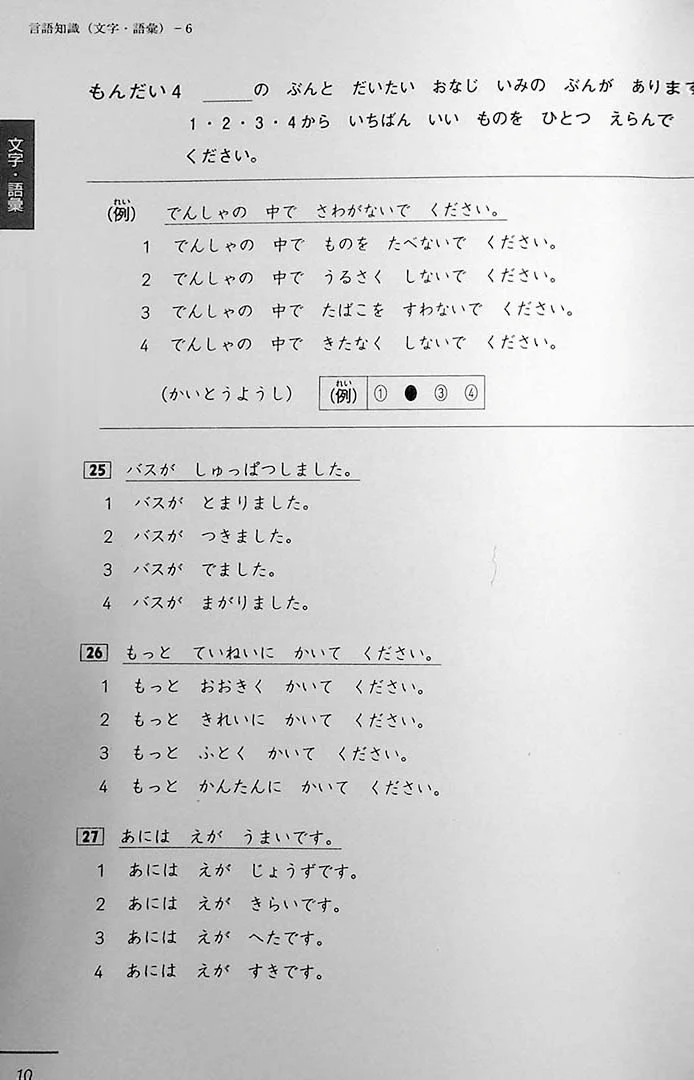 言語知識（文字・語彙）－6
もんだい4　＿＿＿の　ぶんと　だいたい　おなじ　いみの　ぶんが　あります
1・2・3・4から　いちばん　いい　ものを　ひとつ　えらんで
ください。
文字・語彙
(例)　でんしゃの　中で　さわがないで　ください。
1　でんしゃの　中で　ものを　たべないで　ください。
2　でんしゃの　中で　うるさく　しないで　ください。
3　でんしゃの　中で　たばこを　すわないで　ください。
4　でんしゃの　中で　きたなく　しないで　ください。
(かいとうようし)　(例)　①　●　③　④
25　バスが　しゅっぱつしました。
1　バスが　とまりました。
2　バスが　つきました。
3　バスが　でました。
4　バスが　まがりました。
26　もっと　ていねいに　かいて　ください。
1　もっと　おおきく　かいて　ください。
2　もっと　きれいに　かいて　ください。
3　もっと　ふとく　かいて　ください。
4　もっと　かんたんに　かいて　ください。
27　あには　えが　うまいです。
1　あには　えが　じょうずです。
2　あには　えが　きらいです。
3　あには　えが　へたです。
4　あには　えが　すきです。
10